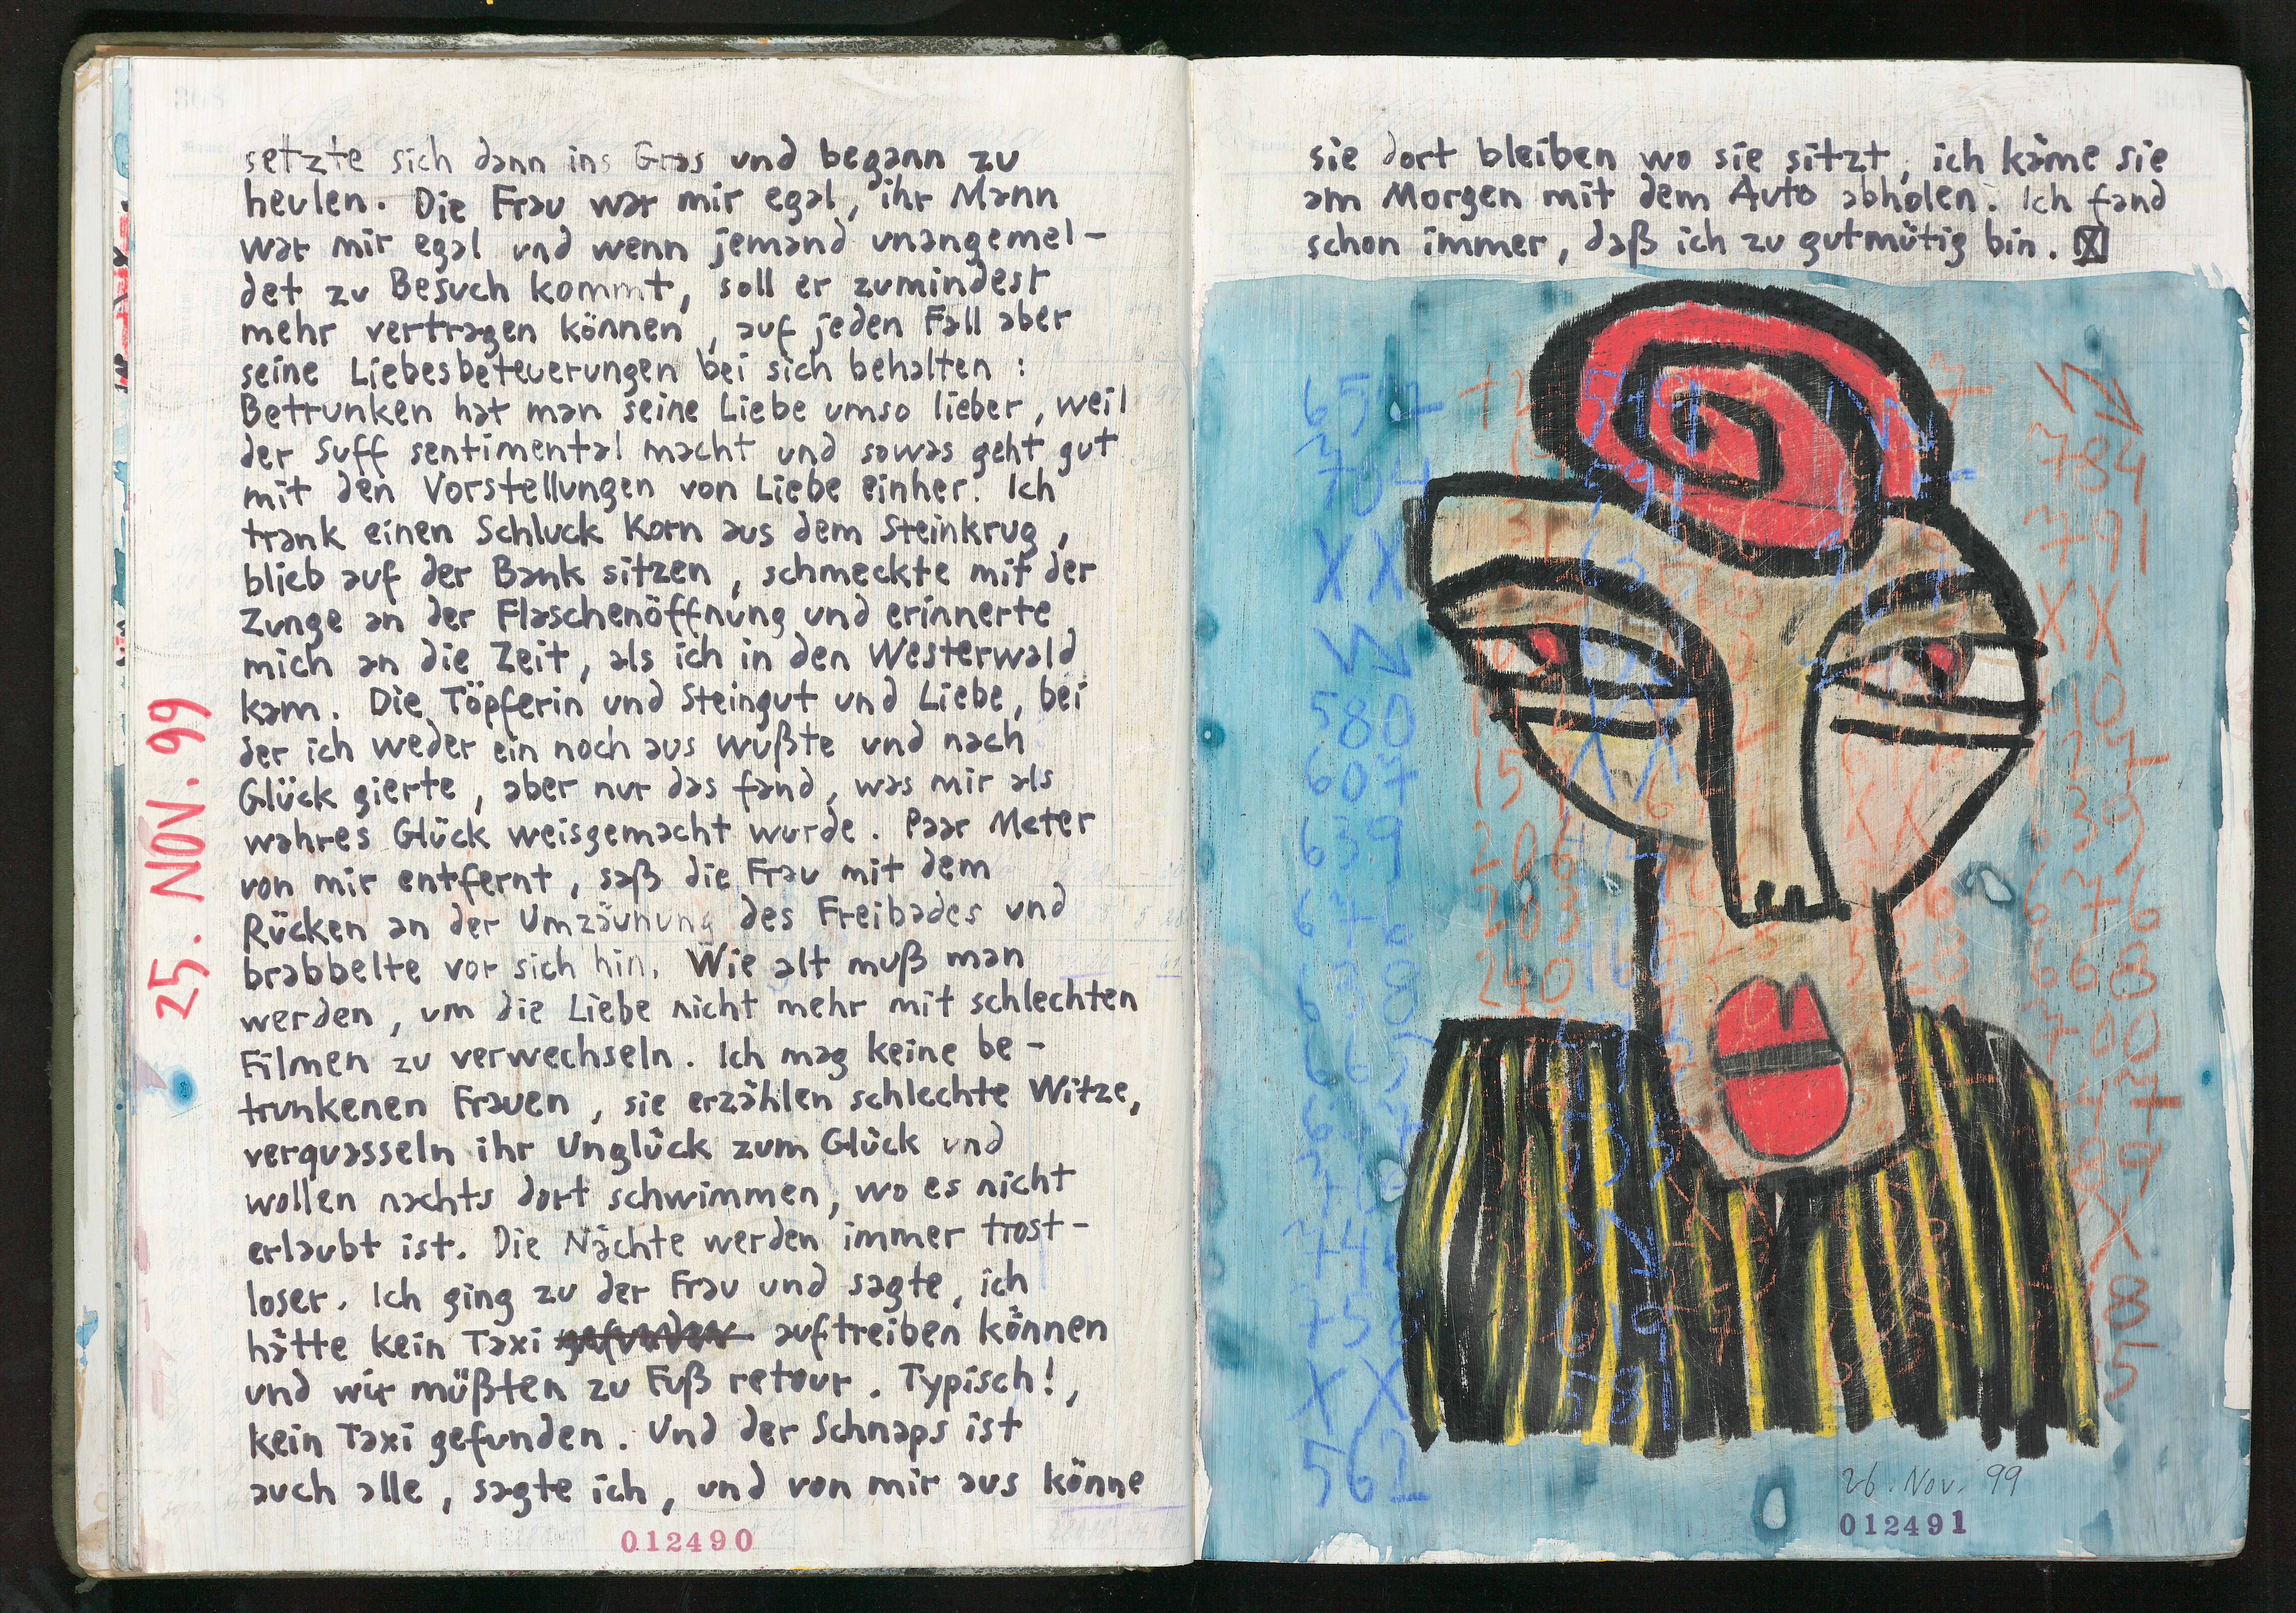 setzte sich dann ins Gras und begann zu
heulen. Die Frau war mir egal, ihr Mann
war mir egal und wenn jemand unangemel-
det zu Besuch kommt, soll er zumindest
mehr vertragen können, auf jeden Fall aber
seine Liebesbeteuerungen bei sich behalten :
Betrunken hat man seine Liebe umso lieber, weil
der Suff sentimental macht und sowas geht gut
mit den Vorstellungen von Liebe einher. Ich
trank einen Schluck Korn aus dem Steinkrug,
blieb auf der Bank sitzen, schmeckte mit der
Zunge an der Flaschenöffnung und erinnerte
mich an die Zeit, als ich in den Westerwald
kam. Die Töpferin und Steingut und Liebe, bei
der ich weder ein noch aus wußte und nach
Glück gierte, aber nur das fand, was mir als
wahres Glück weisgemacht wurde. Paar Meter
von mir entfernt, saß die Frau mit dem
Rücken an der Umzäunung des Freibades und
brabbelte vor sich hin. Wie alt muß man
werden, um die Liebe nicht mehr mit schlechten
Filmen zu verwechseln. Ich mag keine be-
trunkenen Frauen, sie erzählen schlechte Witze,
verquasseln ihr Unglück zum Glück und
wollen nachts dort schwimmen, wo es nicht
erlaubt ist. Die Nächte werden immer trost-
loser. Ich ging zu der Frau und sagte, ich
hätte kein Taxi gefunden auftreiben können
und wir müßten zu Fuß retour. Typisch!,
kein Taxi gefunden. Und der Schnaps ist
auch alle, sagte ich, und von mir aus könne
25. NOV. 99
012490
sie dort bleiben wo sie sitzt, ich käme sie
am Morgen mit dem Auto abholen. Ich fand
schon immer, daß ich zu gutmütig bin. X
784
791
X X
X X
580
607
639
676
668
700
206
240
619
581
X X
562
26. Nov. 99
012491